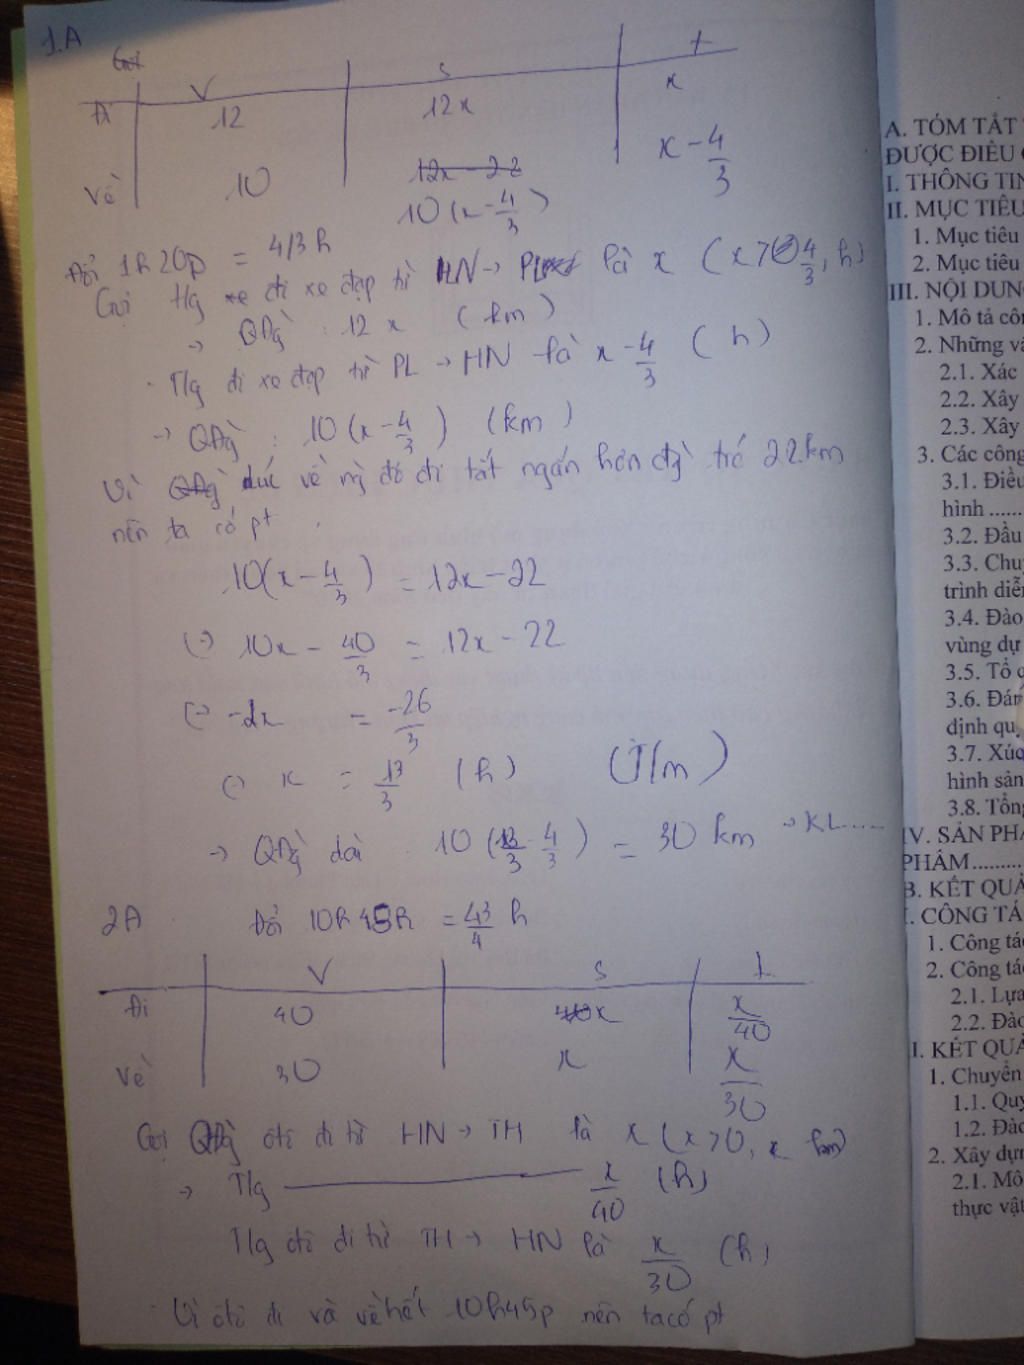 1.A
V S t
Đi 12 12x x
Về 10 12x - 22 x - 4/3
10(x - 4/3)
Đổi 1h20p = 4/3 h
Gọi tg xe đi xe đạp từ HN → PL là x (x > 4/3, h)
→ QĐg : 12x (km)
Tg đi xe đạp từ PL → HN là x - 4/3 (h)
→ QĐg : 10(x - 4/3) (km)
Vì QĐg lúc về ng đó đi tắt ngắn hơn đg trc 22km
nên ta có pt
10(x - 4/3) = 12x - 22
(-) 10x - 40/3 = 12x - 22
(-) -2x = -26/3
(-) x = 13/3 (h) (T/m)
→ QĐg dài 10(13/3 - 4/3) = 30 km → KL....
2A Đổi 10h45h = 43/4 h
V S t
Đi 40 x x/40
Về 30 x x/30
Gọi QĐg ôtô đi từ HN → TH là x (x > 0, km)
→ Tg x/40 (h)
Tg ôtô đi từ TH → HN là x/30 (h)
Vì ôtô đi và về hết 10h45p nên ta có pt
A. TÓM TẮT
ĐƯỢC ĐIỀU
I. THÔNG TIN
II. MỤC TIÊU
1. Mục tiêu
2. Mục tiêu
III. NỘI DUNG
1. Mô tả
2. Những
2.1. Xác
2.2. Xây
2.3. Xây
3. Các công
3.1. Điều
hình ......
3.2. Đầu
3.3.
trình
3.4. Đào
vùng dự
3.5. Tổ
3.6.
định
3.7.
hình sản
3.8. Tổng
IV. SẢN
PHẨM..........
B. KẾT QUẢ
CÔNG
1. Công
2. Công
2.1. Lựa
2.2.
KẾT QUẢ
1. Chuyển
1.1.
1.2.
2. Xây dựng
2.1. Mô
thực vật